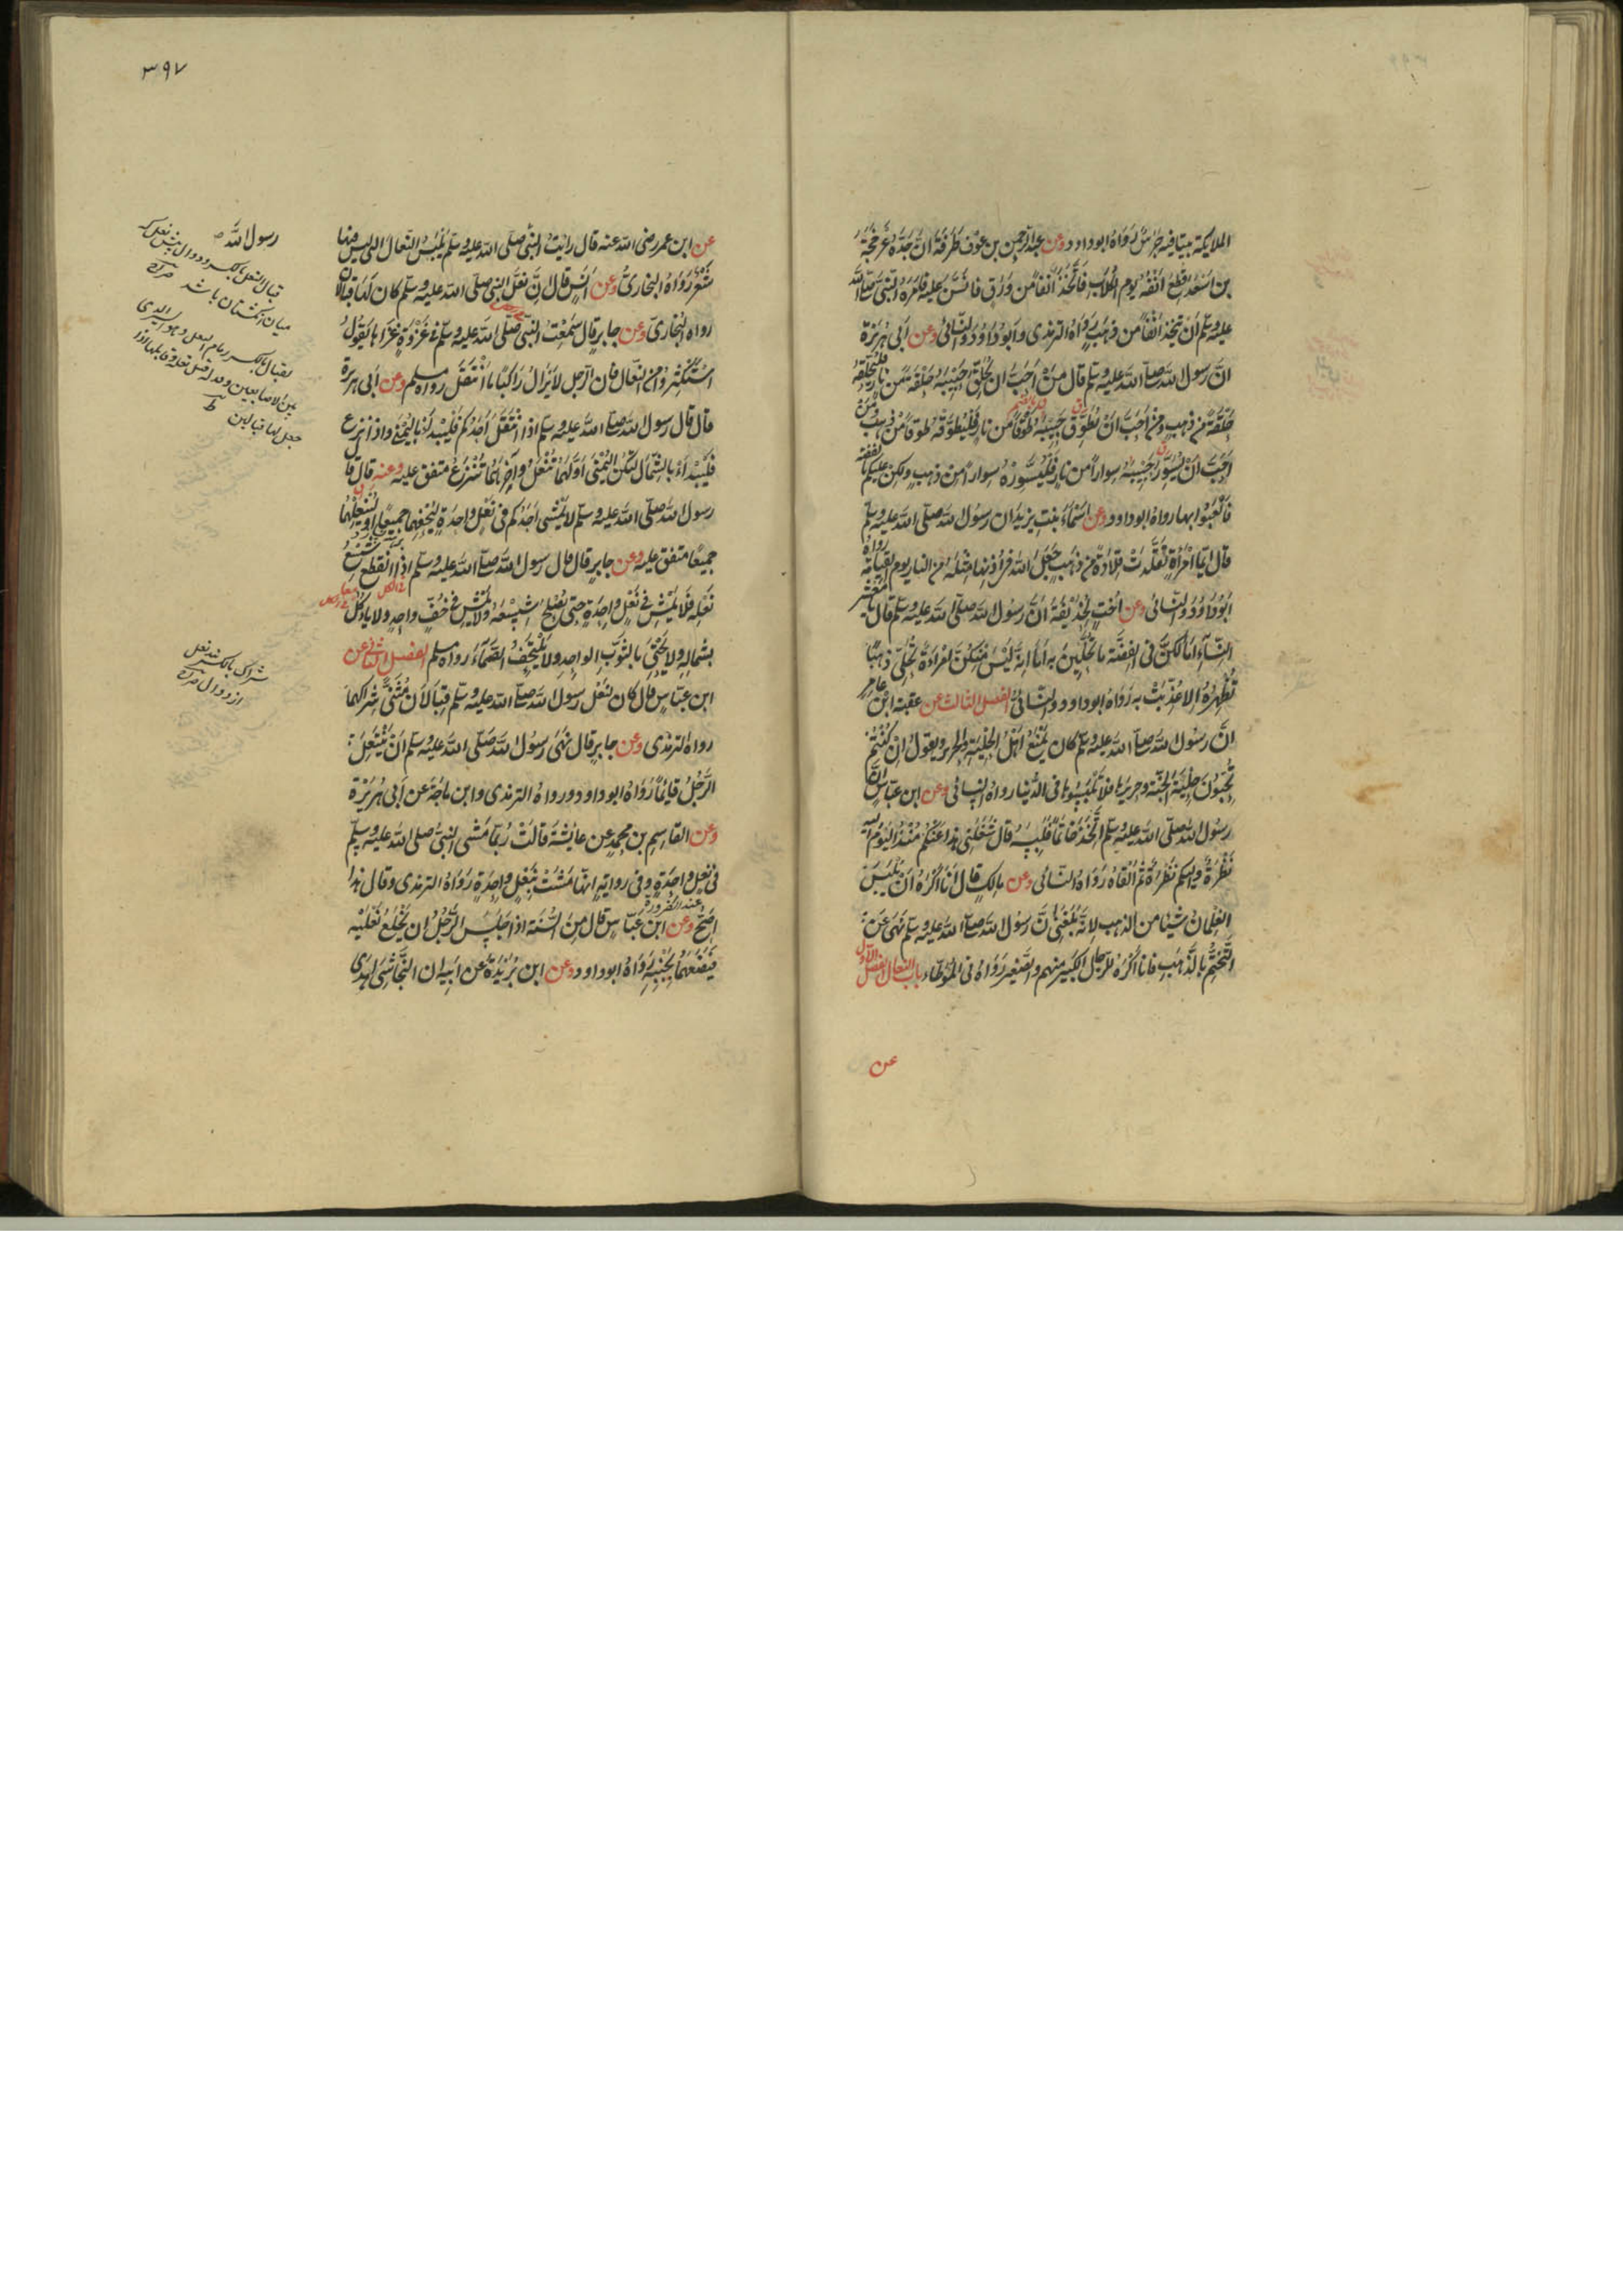 الملايكة بيتا فيه جرس رواه ابو داود وعن عبد الرحمن بن عوف طرفة ان جده عرفجة
بن اسعد قطع انفه يوم الكلاب فاتخذ انفا من ورق فانتن عليه فامره النبي صلى الله
عليه وسلم ان يتخذ انفا من ذهب رواه الترمذى وابو داود والنسائى وعن ابى هريرة
ان رسول الله صلى الله عليه وسلم قال من احب ان يحلق حبيبه حلقة من نار فليحلقه
حلقة من ذهب ومن احب ان يطوق حبيبه طوقا من نار فليطوقه طوقا من ذهب ومن
احب ان يسور حبيبه سوارا من نار فليسوره سوارا من ذهب ولكن عليكم بالفضة
فالعبوا بها رواه ابو داود وعن اسماء بنت يزيد ان رسول الله صلى الله عليه وسلم
قال ايما امرأة تقلدت قلادة من ذهب جعل الله فى اذنها مثله من النار يوم القيامة رواه
ابو داود والنسائى وعن اخت لحذيفة ان رسول الله صلى الله عليه وسلم قال يا معشر
النساء اما لكن فى الفضة ما تحلين به اما انه ليس منكن امراءة تحلى ذهبا
تظهره الا عذبت به رواه ابو داود والنسائى الفصل الثالث عن عقبة ابن عامر
ان رسول الله صلى الله عليه وسلم كان يمنع اهل الحلية والحرير ويقول ان كنتم
تحبون حلية الجنة وحريرها فلا تلبسوها فى الدنيا رواه النسائى وعن ابن عباس ان
رسول الله صلى الله عليه وسلم اتخذ خاتما فلبسه قال شغلنى هذا عنكم منذ اليوم اليه
نظرة واليكم نظرة ثم القاه رواه النسائى وعن مالك قال انا اكره ان يلبس
الغلمان شيئا من الذهب لانه بلغنى ان رسول الله صلى الله عليه وسلم نهى عن
التختم بالذهب فانا اكره للرجال الكبير منهم والصغير رواه فى الموطاء باب النعال الفصل الاول
عن
٣٩٧
عن ابن عمر رضى الله عنه قال رايت النبى صلى الله عليه وسلم يلبس النعال التى ليس فيها
شعر رواه البخارى وعن انس قال ان نعل النبى صلى الله عليه وسلم كان لها قبالان
رواه البخارى وعن جابر قال سمعت النبى صلى الله عليه وسلم فى غزوة غزاها يقول
استكثروا من النعال فان الرجل لا يزال راكبا ما انتعل رواه مسلم وعن ابى هريرة
قال قال رسول الله صلى الله عليه وسلم اذا انتعل احدكم فليبداء باليمنى واذا نزع
فليبداء بالشمال لتكن اليمنى اولهما تنعل وآخرهما تنزع متفق عليه وعنه قال قال
رسول الله صلى الله عليه وسلم لا يمشى احدكم فى نعل واحدة ليحفهما جميعا او لينعلهما
جميعا متفق عليه وعن جابر قال قال رسول الله صلى الله عليه وسلم اذا انقطع شسع
نعله فلا يمش فى نعل واحدة حتى يصلح شسعه ولا يمش فى خف واحد ولا ياكل
بشماله ولا يحتبى بالثوب الواحد ولا يلتحف الصماء رواه مسلم الفصل الثانى عن
ابن عباس قال كان لنعل رسول الله صلى الله عليه وسلم قبالان مثنى شراكهما
رواه الترمذى وعن جابر قال نهى رسول الله صلى الله عليه وسلم ان ينتعل
الرجل قائما رواه ابو داود ورواه الترمذى وابن ماجة عن ابى هريرة
وعن القاسم بن محمد عن عايشة قالت ربما مشى النبى صلى الله عليه وسلم
فى نعل واحدة وفى رواية انها مشت بنعل واحدة رواه الترمذى وقال هذا
عند الضرورة
اصح وعن ابن عباس قال من السنة اذا جلس الرجل ان يخلع نعليه
فيضعهما بجنبه رواه ابو داود وعن ابن بريدة عن ابيه ان النجاشى اهدى
رسول الله
قبال النعل بالكسر دوال پيش نعل كه
ميان انگشتان باشد صراح
شراك بالكسر بند نعل
از دوال صراح